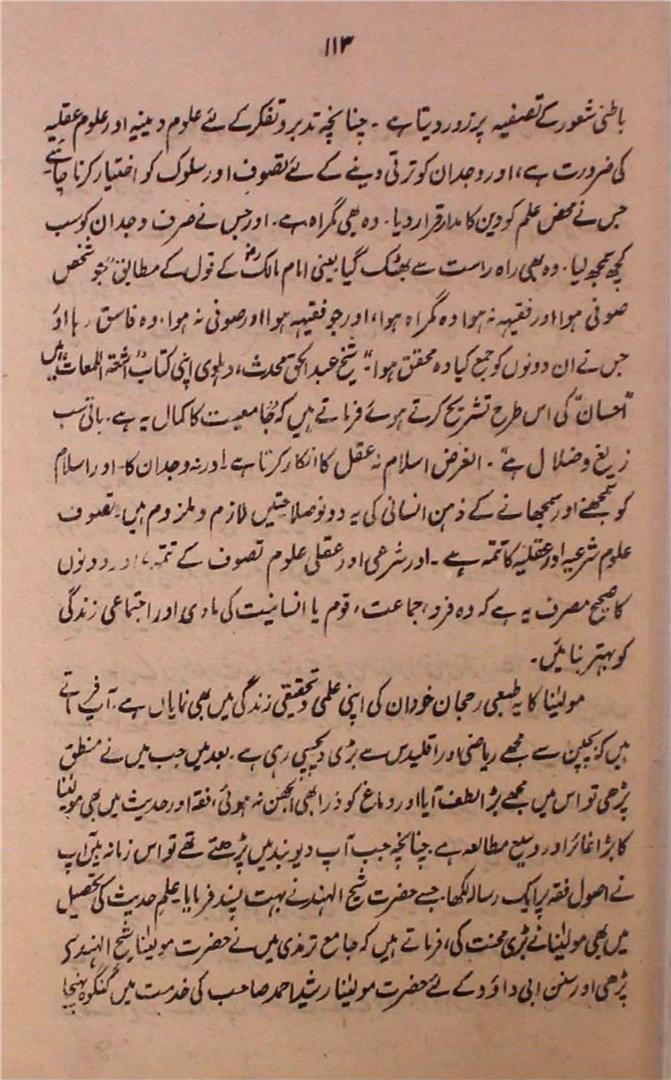 ۱۱۳
باطنی شعور کے تصفیہ پر زور دیتا ہے ۔ چنانچہ تدبر و تفکر کے لئے علوم دینیہ اور علوم عقلیہ
کی ضرورت ہے، اور وجدان کو ترقی دینے کے لئے تصوف اور سلوک کو اختیار کرنا چاہئے۔
جس نے محض علم کو دین کا مدار قرار دیا۔ وہ بھی گمراہ ہے۔ اور جس نے صرف وجدان کو سب
کچھ سمجھ لیا۔ وہ بھی راہ راست سے بھٹک گیا یعنی امام مالکؒ کے قول کے مطابق "جو شخص
صوفی ہوا اور فقیہہ نہ ہوا وہ گمراہ ہوا، اور جو فقیہہ ہوا اور صوفی نہ ہوا۔ وہ فاسق رہا اور
جس نے ان دونوں کو جمع کیا وہ محقق ہوا" شیخ عبدالحق محدث، دہلوی اپنی کتاب "اشعۃ اللمعات" میں
"احسان" کی اس طرح تشریح کرتے ہوئے فرماتے ہیں کہ "جامعیت کا کمال یہ ہے۔ باقی سب
زیغ و ضلال ہے"۔ الغرض اسلام نہ عقل کا انکار کرتا ہے اور نہ وجدان کا۔ اور اسلام
کو سمجھنے اور سمجھانے کے ذہن انسانی کی یہ دونو صلاحتیں لازم و ملزوم ہیں۔ تصوف
علوم شرعیہ اور عقلیہ کا تتمہ ہے ۔ اور شرعی اور عقلی علوم تصوف کے تتمہ، اور دونوں
کا صحیح مصرف یہ ہے کہ وہ فرد، جماعت، قوم یا انسانیت کی مادی اور اجتماعی زندگی
کو بہتر بنائیں۔
مولینا کا یہ طبعی رحجان خود ان کی اپنی علمی و تحقیقی زندگی میں بھی نمایاں ہے۔ آپ فرماتے
ہیں کہ بچپن سے مجھے ریاضی اور اقلیدس سے بڑی دلچسپی رہی ہے۔ بعد میں جب میں نے منطق
پڑھی تو اس میں مجھے بڑا لطف آیا اور دماغ کو ذرا بھی الجھن نہ ہوئی، فقہ اور حدیث میں بھی مولینا
کا بڑا غائر اور وسیع مطالعہ ہے۔ چنانچہ جب آپ دیوبند میں پڑھتے تھے تو اس زمانہ میں آپ
نے اصول فقہ پر ایک رسالہ لکھا۔ جسے حضرت شیخ الہند نے بہت پسند فرمایا۔ علم حدیث کی تحصیل
میں بھی مولینا نے بڑی محنت کی، فرماتے ہیں کہ جامع ترمذی میں نے حضرت مولینا شیخ الہند سے
پڑھی اور سنن ابی داؤد کے لئے حضرت مولینا رشید احمد صاحب کی خدمت میں گنگوہ پہنچا